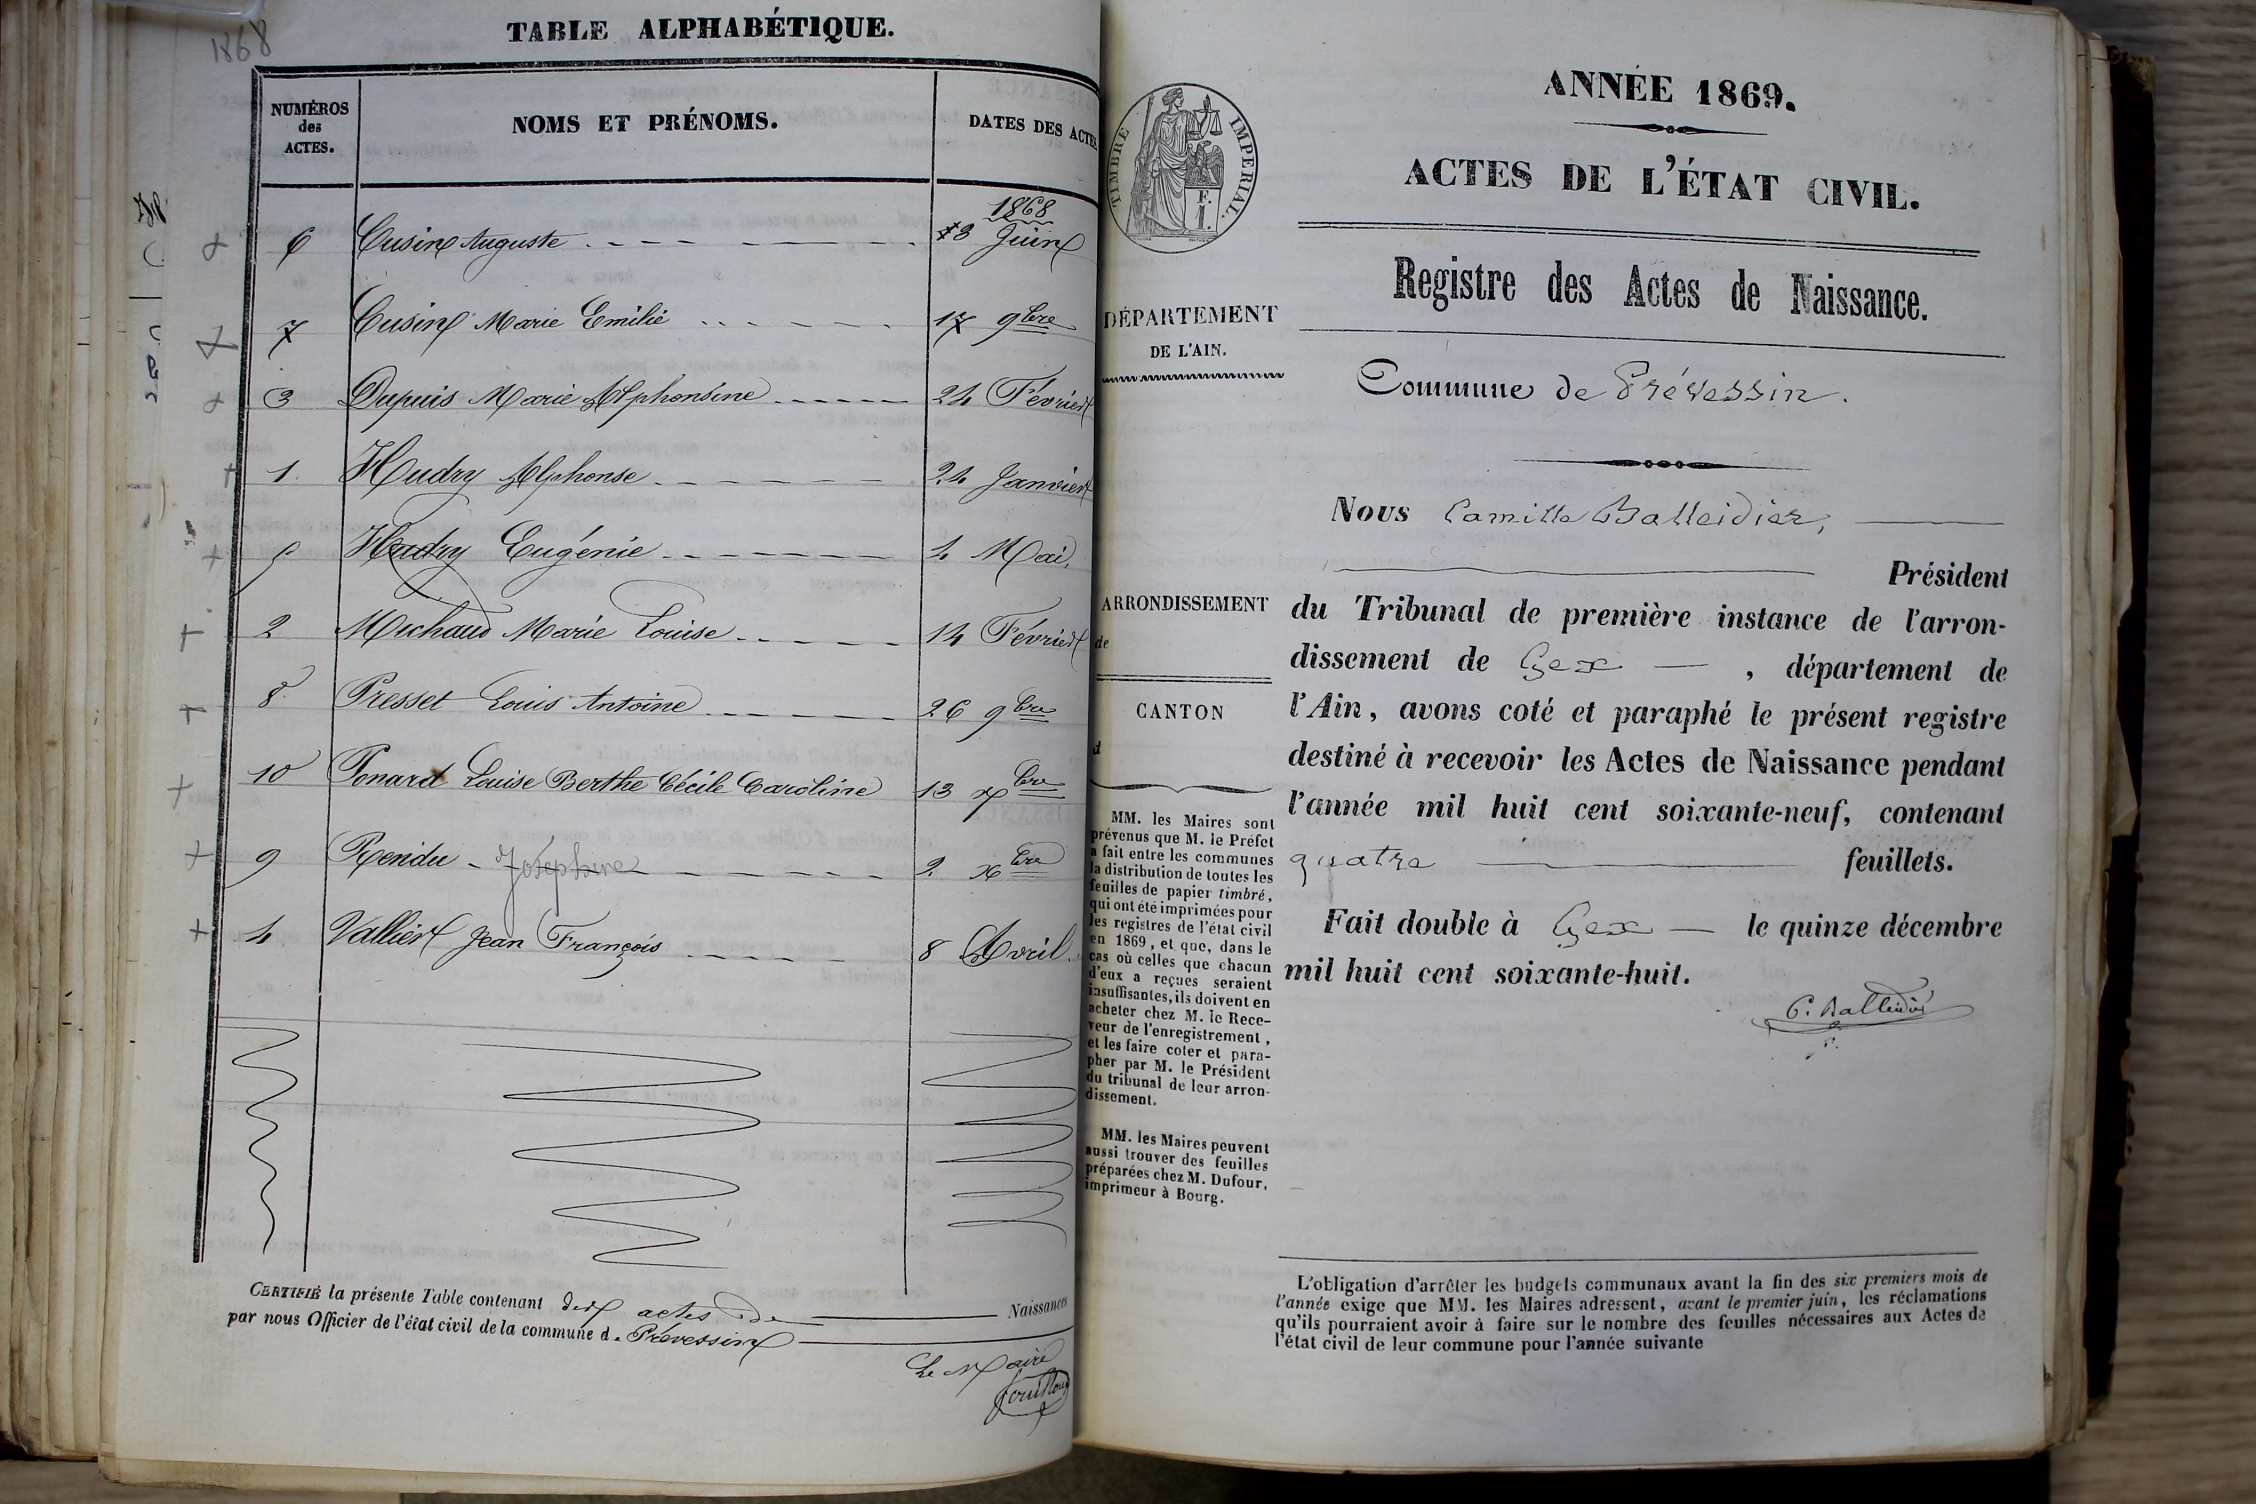 1868
TABLE ALPHABÉTIQUE.
NUMÉROS
des
ACTES.
NOMS ET PRÉNOMS.
DATES DES ACTES
1868
6 Cusin Auguste 13 Juin
7 Cusin Marie Emilie 17 9bre
3 Dupuis Marie Alphonsine 24 Février
1. Hudry Alphonse 24 Janvier
5 Hudry Eugénie 4 Mai.
2 Michaud Marie Louise 14 Février
8 Presset Louis Antoine 26 9bre
10 Ponard Louise Berthe Cécile Caroline 13 xbre
9 Rendu - Joséphine 2 xbre
4 Vallier Jean François 8 Avril.
CERTIFIÉ la présente Table contenant dix actes de Naissances
par nous Officier de l'état civil de la commune de Prevessin
Le Maire
TIMBRE IMPERIAL.
1 F.
DÉPARTEMENT
DE L'AIN.
ARRONDISSEMENT
de
CANTON
d
MM. les Maires sont
prévenus que M. le Préfet
a fait entre les communes
la distribution de toutes les
feuilles de papier timbré,
qui ont été imprimées pour
les registres de l'état civil
en 1869, et que, dans le
cas où celles que chacun
d'eux a reçues seraient
insuffisantes, ils doivent en
acheter chez M. le Rece-
veur de l'enregistrement,
et les faire coter et para-
pher par M. le Président
du tribunal de leur arron-
dissement.
MM. les Maires peuvent
aussi trouver des feuilles
préparées chez M. Dufour,
imprimeur à Bourg.
ANNÉE 1869.
ACTES DE L'ÉTAT CIVIL.
Registre des Actes de Naissance.
Commune de Prévessin.
Nous Camille Balleidier,
Président
du Tribunal de première instance de l'arron-
dissement de Gex, département de
l'Ain, avons coté et paraphé le présent registre
destiné à recevoir les Actes de Naissance pendant
l'année mil huit cent soixante-neuf, contenant
quatre feuillets.
Fait double à Gex le quinze décembre
mil huit cent soixante-huit.
C. Balleidier
L'obligation d'arrêter les budgets communaux avant la fin des six premiers mois de
l'année exige que MM. les Maires adressent, avant le premier juin, les réclamations
qu'ils pourraient avoir à faire sur le nombre des feuilles nécessaires aux Actes de
l'état civil de leur commune pour l'année suivante